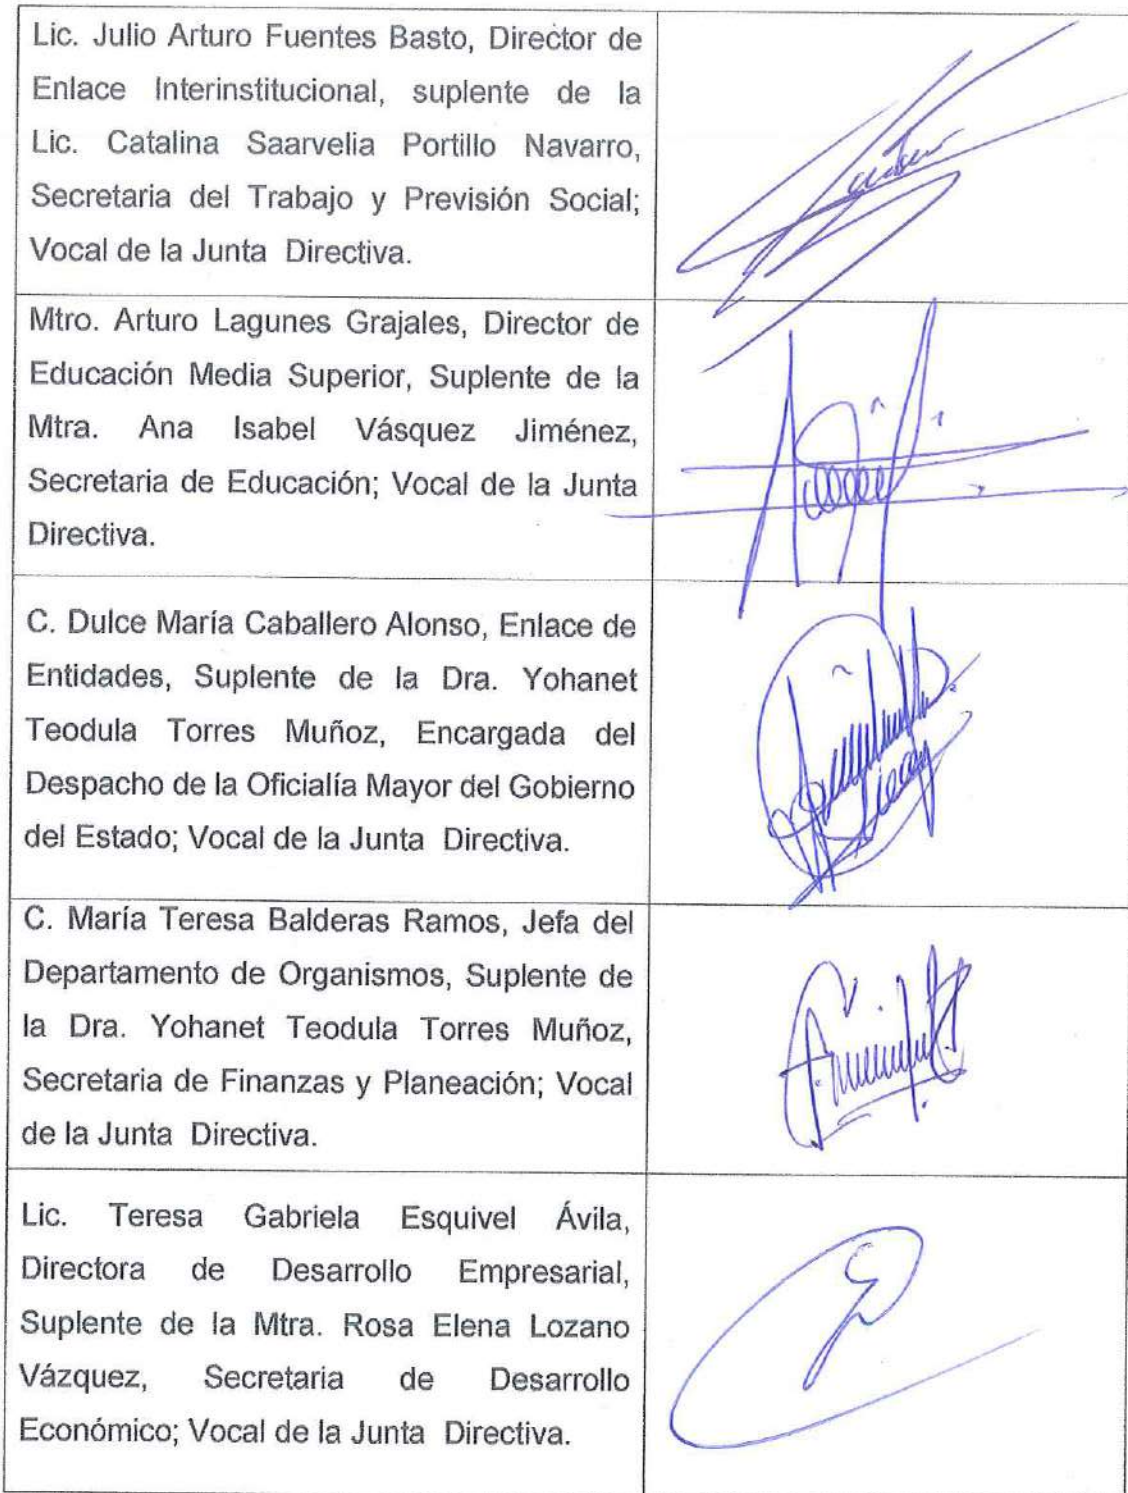 Lic. Julio Arturo Fuentes Basto, Director de
Enlace Interinstitucional, suplente de la
Lic. Catalina Saarvelia Portillo Navarro,
Secretaria del Trabajo y Previsión Social;
Vocal de la Junta Directiva.
Mtro. Arturo Lagunes Grajales, Director de
Educación Media Superior, Suplente de la
Mtra. Ana Isabel Vásquez Jiménez,
Secretaria de Educación; Vocal de la Junta
Directiva.
C. Dulce María Caballero Alonso, Enlace de
Entidades, Suplente de la Dra. Yohanet
Teodula Torres Muñoz, Encargada del
Despacho de la Oficialía Mayor del Gobierno
del Estado; Vocal de la Junta Directiva.
C. María Teresa Balderas Ramos, Jefa del
Departamento de Organismos, Suplente de
la Dra. Yohanet Teodula Torres Muñoz,
Secretaria de Finanzas y Planeación; Vocal
de la Junta Directiva.
Lic. Teresa Gabriela Esquivel Ávila,
Directora de Desarrollo Empresarial,
Suplente de la Mtra. Rosa Elena Lozano
Vázquez, Secretaria de Desarrollo
Económico; Vocal de la Junta Directiva.